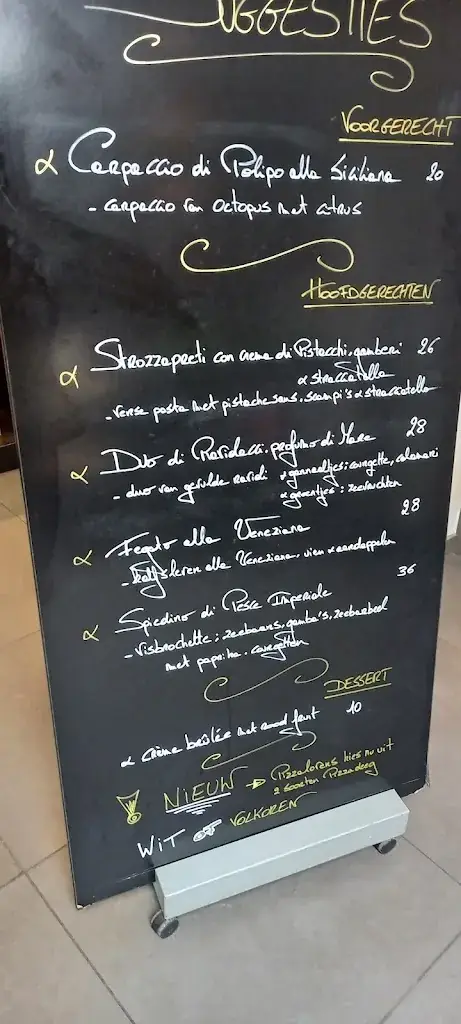 SUGGESTIES
VOORGERECHT
Carpaccio di Polipo alla Siciliana 20
- carpaccio van octopus met citrus
HOOFDGERECHTEN
Strozzapreti con crema di Pistacchi, gamberi 26
& stracciatella
- verse pasta met pistachesaus, scampi's & stracciatella
Duo di Ravidacci, profumo di Mare 28
- duo van gevulde ravioli courgette, calamari
: zeevruchten
Fegato alla Veneziana 28
- kalfslever alla Veneziana, uien & aardappelen
Spiedino di Pesce Imperiale 36
- Visbrochette: zeebaars, gamba's, zeeduivel
met paprika, courgetten
DESSERT
crème brûlée met rood fruit 10
! NIEUW → Pizzalovers kies nu uit
2 soorten Pizzadeeg
WIT OF VOLKOREN